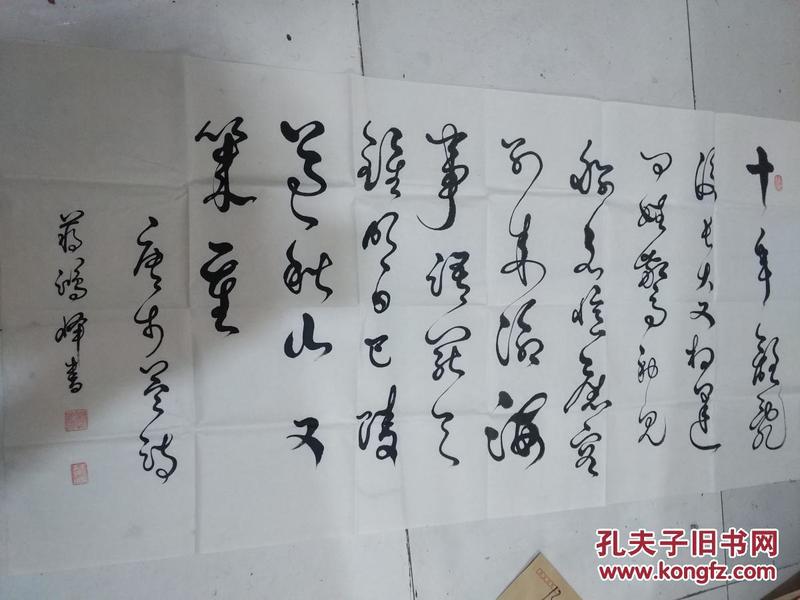 十年離亂
後长大又相逢
问姓驚初見
称名憶舊容
别来滄海
事語罷天
鐘明日巴陵
道秋山又
重
唐李益詩
蒋鴻書
孔夫子旧书网
www.kongfz.com